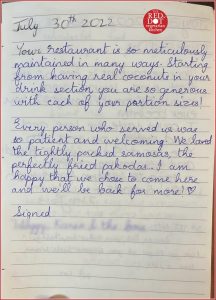 July 30th 2022
RED DOT
Your restaurant is so meticulously
maintained in many ways. Starting
from having real coconuts in your
drink section, you are so generous
with each of your portion sizes!
Every person who served us was
so patient and welcoming. We loved
the tightly packed samosas, the
perfectly fried pakodas... I am
happy that we chose to come here
and we'll be back for more! ♡
Signed